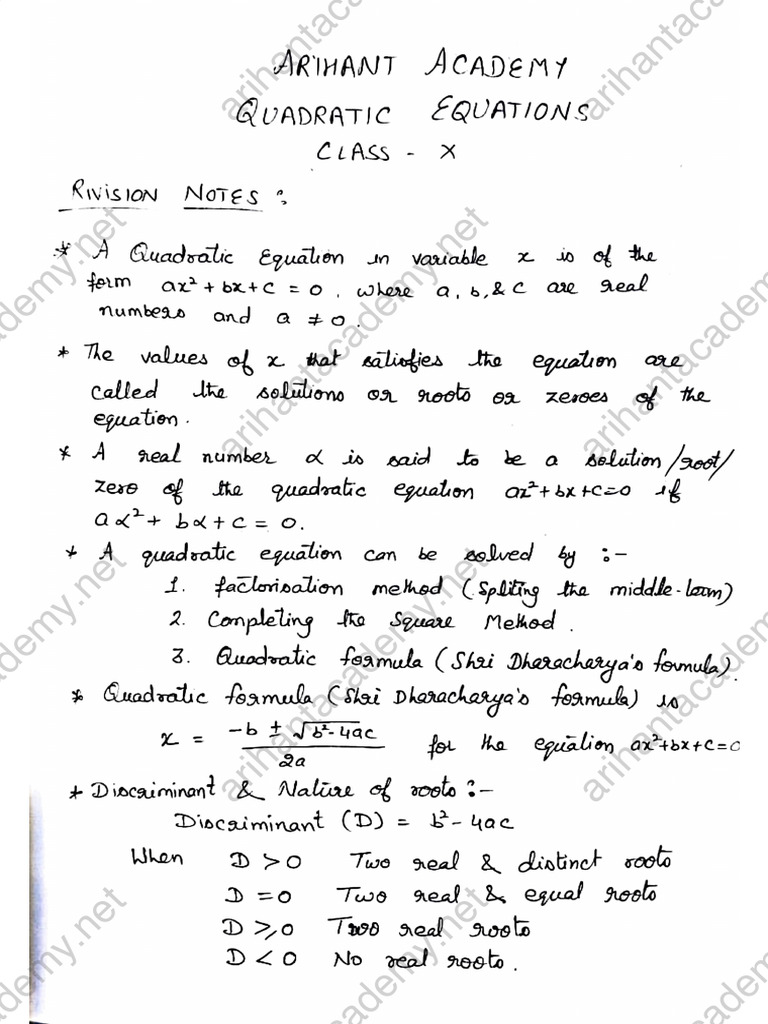 ARIHANT ACADEMY
QUADRATIC EQUATIONS
CLASS - X
RIVISION NOTES :
* A Quadratic Equation in variable x is of the
form ax² + bx + c = 0, where a, b, & c are real
numbers and a ≠ 0.
* The values of x that satisfies the equation are
called the solutions or roots or zeroes of the
equation.
* A real number α is said to be a solution/root/
zero of the quadratic equation ax²+bx+c=0 if
aα² + bα + c = 0.
* A quadratic equation can be solved by :-
1. factorisation method (Spliting the middle-term)
2. Completing the Square Method.
3. Quadratic formula (Shri Dharacharya's formula).
* Quadratic formula (Shri Dharacharya's formula) is
x = (-b ± √(b²-4ac))/2a for the equation ax²+bx+c=0
* Discriminant & Nature of roots :-
Discriminant (D) = b² - 4ac
When D > 0 Two real & distinct roots
D = 0 Two real & equal roots
D ≥ 0 Two real roots
D < 0 No real roots.
arihantacademy.net